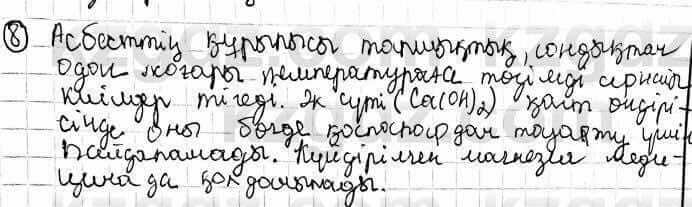 ⑧ Асбесттің құрылысы талшықтық, сондықтан
одан жоғары температураға төзімді арнайы
киімдер тігеді. Әк сүті (Ca(OH)₂) қант өндірі-
сінде оны бөгде қоспалардан тазарту үшін
пайдаланады. Күйдірілген магнезия меди-
цинада қолданылады.